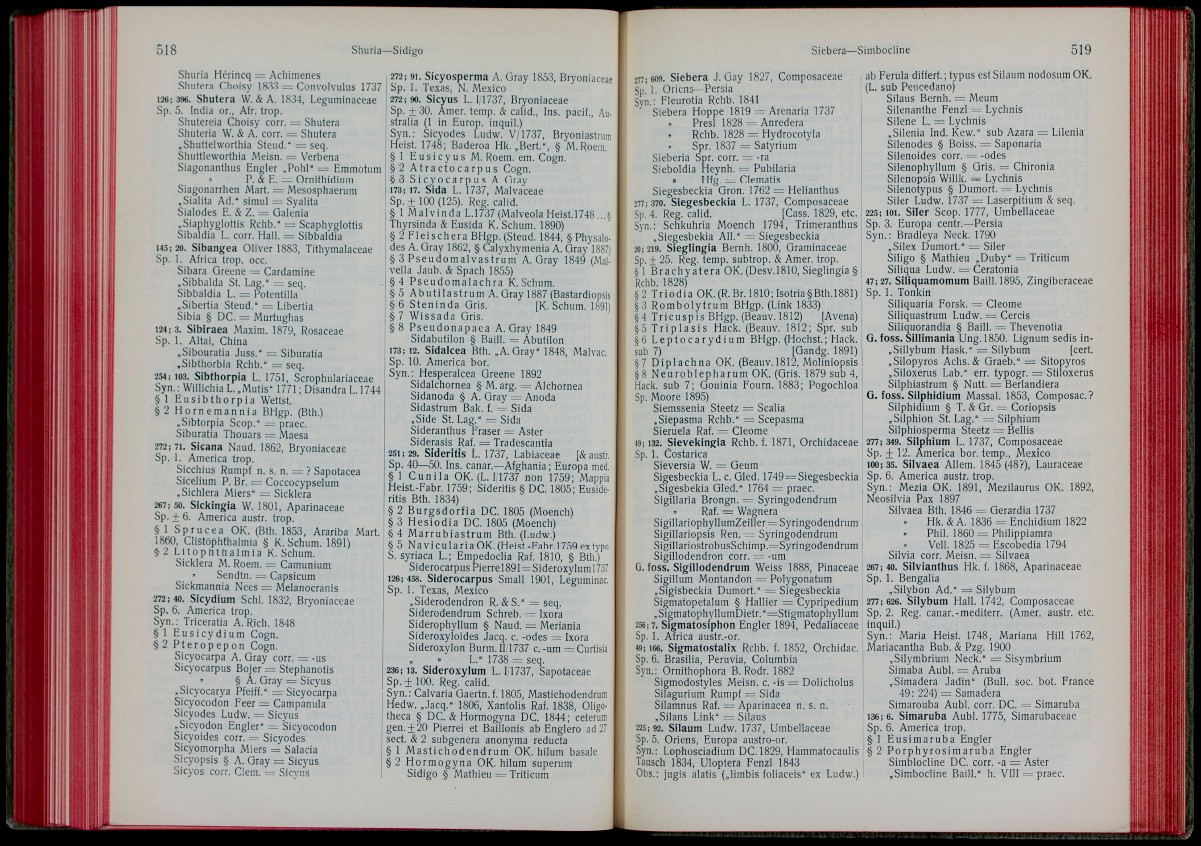 518
Shuria—Sidigo
Shuria Hérincq = Achimenes
Shutera Choisy 1833 = Convolvulus 1737
126; 396. Shutera W. & A. 1834, Leguminaceae
Sp. 5. India or., Afr. trop.
Shutereia Choisy corr. = Shutera
Shuteria W. & A. corr. = Shutera
„Shuttelworthia Steud.“ = seq.
Shuttleworthia Meisn. = Verbena
Siagonanthus Engler „Pohl“ = Emmotum
„ P. & E. = Ornithidium
Siagonarrhen Mart. = Mesosphaerum
„Sialita Ad.“ simul = Syalita
Sialodes E. & Z. = Galenia
„Siaphyglottis Rchb.“ = Scaphyglottis
Sibaldia L. corr. Hall. = Sibbaldia
145; 20. Sibangea Oliver 1883, Tithymalaceae
Sp. 1. Africa trop. occ.
Sibara Greene = Cardamine
„Sibbalda St. Lag.“ = seq.
Sibbaldia L. = Potentilla
„Sibertia Steud.“ = Libertia
Sibia § DC. = Murtughas
124; 3. Sibiraea Maxim. 1879, Rosaceae
Sp. 1. Altai, China
„Sibouratia Juss.“ = Siburatia
„Sibthorbia Rchb.“ = seq.
254; 103. Sibthorpia L. 1751, Scrophulariaceae
Syn.: Willichia L. „Mutis“ 1771; Disandra L. 1744
§ 1 Eusibthorpia Wettst.
§ 2 Hornemannia BHgp. (Bth.)
„Sibtorpia Scop.“ = praec.
Siburatia Thouars = Maesa
272; 71. Sicana Naud. 1862, Bryoniaceae
Sp. 1. America trop.
Sicchius Rumpf n. s. n. = ? Sapotacea
Sicelium P. Br. = Coccocypselum
„Sichlera Miers“ = Sicklera
267; 50. Sickingia W. 1801, Aparinaceae
Sp. ± 6. America austr. trop.
§ 1 Sprucea OK. (Bth. 1853, Arariba Mart.
1860, Clistophthalmia § K. Schum. 1891)
§ 2 Litophthalmia K. Schum.
Sicklera M. Roem. = Camunium
„ Sendtn. = Capsicum
Sickmannia Nees = Melanocranis
272; 40. Sicydium Schl. 1832, Bryoniaceae
Sp. 6. America trop.
Syn.: Triceratia A. Rich. 1848
§ 1 Eusicydium Cogn.
§ 2 Pteropepon Cogn.
Sicyocarpa A. Gray corr. = -us
Sicyocarpus Bojer = Stephanotis
„ § A. Gray = Sicyus
„Sicyocarya Pfeiff.“ = Sicyocarpa
Sicyocodon Feer = Campanula
Sicyodes Ludw. = Sicyus
„Sicyodon Engler“ = Sicyocodon
Sicyoides corr. = Sicyodes
Sicyomorpha Miers = Salacia
Sicyopsis § A. Gray = Sicyus
Sicyos corr. Clem. = Sicyus
272; 91. Sicyosperma A. Gray 1853, Bryoniaceae
Sp. 1. Texas, N. Mexico
272; 90. Sicyus L. I/1737, Bryoniaceae
Sp. ± 30. Amer. temp. & calid., Ins. pacif., Au-
stralia (1 in Europ. inquil.)
Syn.: Sicyodes Ludw. V/1737, Bryoniastrum
Heist. 1748; Baderoa Hk. „Bert.“, § M. Roem.
§ 1 Eusicyus M. Roem. em. Cogn.
§ 2 Atractocarpus Cogn.
§ 3 Sicyocarpus A. Gray
173; 17. Sida L. 1737, Malvaceae
Sp. ± 100 (125). Reg. calid.
§ 1 Malvinda L. 1737 (Malveola Heist. 1748 ... §
Thyrsinda & Eusida K. Schum. 1890)
§ 2 Fleischera BHgp. (Steud. 1844, § Physalo-
des A. Gray 1862, § Calyxhymenia A. Gray 1887)
§ 3 Pseudomalvastrum A. Gray 1849 (Mal-
vella Jaub. & Spach 1855)
§ 4 Pseudomalachra K. Schum.
§ 5 Abutilastrum A. Gray 1887 (Bastardiopsis
§ 6 Steninda Gris. [K. Schum. 1891)
§ 7 Wissada Gris.
§ 8 Pseudonapaea A. Gray 1849
Sidabutilon § Baill. = Abutilon
173; 12. Sidalcea Bth. „A. Gray“ 1848, Malvac.
Sp. 10. America bor.
Syn.: Hesperalcea Greene 1892
Sidalchornea § M. arg. = Alchornea
Sidanoda § A. Gray = Anoda
Sidastrum Bak. f. = Sida
„Side St. Lag.“ = Sida
Sideranthus Fraser = Aster
Siderasis Raf. = Tradescantia
251; 29. Sideritis L. 1737, Labiaceae [& austr.
Sp. 40—50. Ins. canar.—Afghania; Europa med.
§ 1 Cunila OK. (L. I/1737 non 1759; Mappia
Heist.-Fabr. 1759; Sideritis § DC. 1805; Euside-
ritis Bth. 1834)
§ 2 Burgsdorfia DC. 1805 (Moench)
§ 3 Hesiodia DC. 1805 (Moench)
§ 4 Marrubiastrum Bth. (Ludw.)
§ 5 Navicularia OK. (Heist.-Fabr 1759 ex typo
S. syriaca L.; Empedoclia Raf. 1810, § Bth.)
Siderocarpus Pierre 1891 = Sideroxylum 1737
126; 458. Siderocarpus Small 1901, Leguminac.
Sp. 1. Texas, Mexico
„Siderodendron R. & S.“ = seq.
Siderodendrum Schreb. = Ixora
Siderophyllum § Naud. = Meriania
Sideroxyloides Jacq. c. -odes = Ixora
Sideroxylon Burm. II/1737 c. -um = Curtisia
„ „ L.“ 1738 = seq.
236; 13. Sideroxylum L. I/1737, Sapotaceae
Sp. ± 100. Reg. calid.
Syn.: Calvaria Gaertn. f. 1805, Mastichodendrum
Hedw. „Jacq.“ 1806, Xantolis Raf. 1838, Oligo-
theca § DC. & Hormogyna DC. 1844; ceterum
gen. ± 20 Pierrei et Baillonis ab Englero ad 27
sect. & 2 subgenera anonyma reducta
§ 1 Mastichodendrum OK. hilum basale
§ 2 Hormogyna OK. hilum superum
Sidigo § Mathieu = Triticum
Siebera—Simbocline
519
277; 609. Siebera J. Gay 1827, Composaceae
Sp. 1. Oriens—Persia
Syn.: Fleurotia Rchb. 1841
Siebera Hoppe 1819 = Arenaria 1737
„ Presl 1828 = Anredera
„ Rchb. 1828 = Hydrocotyla
„ Spr. 1837 = Satyrium
Sieberia Spr. corr. = -ra
Sieboldia Heynh. = Pubilaria
„ Hfg. = Clematis
Siegesbeckia Gron. 1762 = Helianthus
277; 370. Siegesbeckia L. 1737, Composaceae
Sp. 4. Reg. calid. [Cass. 1829, etc.
Syn.: Schkuhria Moench 1794, Trimeranthus
„Siegesbekia All.“ = Siegesbeckia
20; 219. Sieglingia Bernh. 1800, Graminaceae
Sp. ± 25. Reg. temp. subtrop. & Amer. trop.
§ 1 Brachyatera OK. (Desv. 1810, Sieglingia §
Rchb. 1828)
§ 2 Triodia OK. (R. Br. 1810; Isotria § Bth. 1881)
§ 3 Rombolytrum BHgp. (Link 1833)
§ 4 Tricuspis BHgp. (Beauv. 1812) [Avena)
§ 5 Triplasis Hack. (Beauv. 1812; Spr. sub
§ 6 Leptocarydium BHgp. (Hochst.; Hack.
sub 7) [Gandg. 1891)
§ 7 Diplachna OK. (Beauv. 1812, Moliniopsis
§ 8 Neuroblepharum OK. (Gris. 1879 sub 4,
Hack. sub 7; Gouinia Fourn. 1883; Pogochloa
Sp. Moore 1895)
Siemssenia Steetz = Scalia
„Siepasma Rchb.“ = Scepasma
Sieruela Raf. = Cleome
49; 132. Sievekingia Rchb. f. 1871, Orchidaceae
Sp. 1. Costarica
Sieversia W. = Geum
Sigesbeckia L. c. Gled. 1749 = Siegesbeckia
„Sigesbekia Gled.“ 1764 = praec.
Sigillaria Brongn. = Syringodendrum
„ Raf. = Wagnera
Sigillariophyllum Zeiller = Syringodendrum
Sigillariopsis Ren. = Syringodendrum
Sigillariostrobus Schimp. = Syringodendrum
Sigillodendron corr. = -um
G. foss. Sigillodendrum Weiss 1888, Pinaceae
Sigillum Montandon = Polygonatum
„Sigisbeckia Dumort.“ = Siegesbeckia
Sigmatopetalum § Hallier = Cypripedium
„Sigmatophyllum Dietr.“ = Stigmatophyllum
256; 7. Sigmatosiphon Engler 1894, Pedaliaceae
Sp. 1. Africa austr.-or.
49; 166. Sigmatostalix Rchb. f. 1852, Orchidac.
Sp. 6. Brasilia, Peruvia, Columbia
Syn.: Ornithophora B. Rodr. 1882
Sigmodostyles Meisn. c. -is = Dolicholus
Silagurium Rumpf = Sida
Silamnus Raf. = Aparinacea n. s. n.
„Silans Link“ = Silaus
225; 92. Silaum Ludw. 1737, Umbellaceae
Sp. 5. Oriens, Europa austro-or.
Syn.: Lophosciadium DC. 1829, Hammatocaulis
Tausch 1834, Uloptera Fenzl 1843
Obs.: jugis alatis („limbis foliaceis“ ex Ludw.)
ab Ferula differt.; typus est Silaum nodosum OK.
(L. sub Peucedano)
Silaus Bernh. = Meum
Silenanthe Fenzl = Lychnis
Silene L. = Lychnis
„Silenia Ind. Kew.“ sub Azara = Lilenia
Silenodes § Boiss. = Saponaria
Silenoides corr. = -odes
Silenophyllum § Gris. = Chironia
Silenopsis Willk. = Lychnis
Silenotypus § Dumort. = Lychnis
Siler Ludw. 1737 = Laserpitium & seq.
225; 101. Siler Scop. 1777, Umbellaceae
Sp. 3. Europa centr.—Persia
Syn.: Bradleya Neck. 1790
„Silex Dumort.“ = Siler
Siligo § Mathieu „Duby“ = Triticum
Siliqua Ludw. = Ceratonia
47; 27. Siliquamomum Baill. 1895, Zingiberaceae
Sp. 1. Tonkin
Siliquaria Forsk. = Cleome
Siliquastrum Ludw. = Cercis
Siliquorandia § Baill. = Thevenotia
G. foss. Sillimania Ung. 1850. Lignum sedis in-
„Sillybum Hask.“ = Silybum [cert.
„Silopyros Achs. & Graeb.“ = Sitopyros
„Siloxerus Lab.“ err. typogr. = Stiloxerus
Silphiastrum § Nutt. = Berlandiera
G. foss. Silphidium Massal. 1853, Composac. ?
Silphidium § T. & Gr. = Coriopsis
„Silphion St. Lag.“ = Silphium
Silphiosperma Steetz = Bellis
277; 349. Silphium L. 1737, Composaceae
Sp. ± 12. America bor. temp., Mexico
100; 35. Silvaea Allem. 1845 (48?), Lauraceae
Sp. 6. America austr. trop.
Syn.: Mezia OK. 1891, Mezilaurus OK. 1892,
Neosilvia Pax 1897
Silvaea Bth. 1846 = Gerardia 1737
„ Hk. & A. 1836 = Enchidium 1822
„ Phil. 1860 = Philippiamra
„ Vell. 1825 = Escobedia 1794
Silvia corr. Meisn. = Silvaea
267; 40. Silvianthus Hk. f. 1868, Aparinaceae
Sp. 1. Bengalia
„Silybon Ad.“ = Silybum
277; 626. Silybum Hall. 1742, Composaceae
Sp. 2. Reg. canar.-mediterr. (Amer. austr. etc.
inquil.)
Syn.: Maria Heist. 1748, Mariana Hill 1762,
Mariacantha Bub. & Pzg. 1900
„Silymbrium Neck.“ = Sisymbrium
Simaba Aubl. = Aruba
„Simadera Jadin“ (Bull. soc. bot. France
49: 224) = Samadera
Simarouba Aubl. corr. DC. = Simaruba
136; 6. Simaruba Aubl. 1775, Simarubaceae
Sp. 6. America trop.
§ 1 Eusimaruba Engler
§ 2 Porphyrosimaruba Engler
Simblocline DC. corr. -a = Aster
„Simbocline Baill.“ h. VIII = praec.